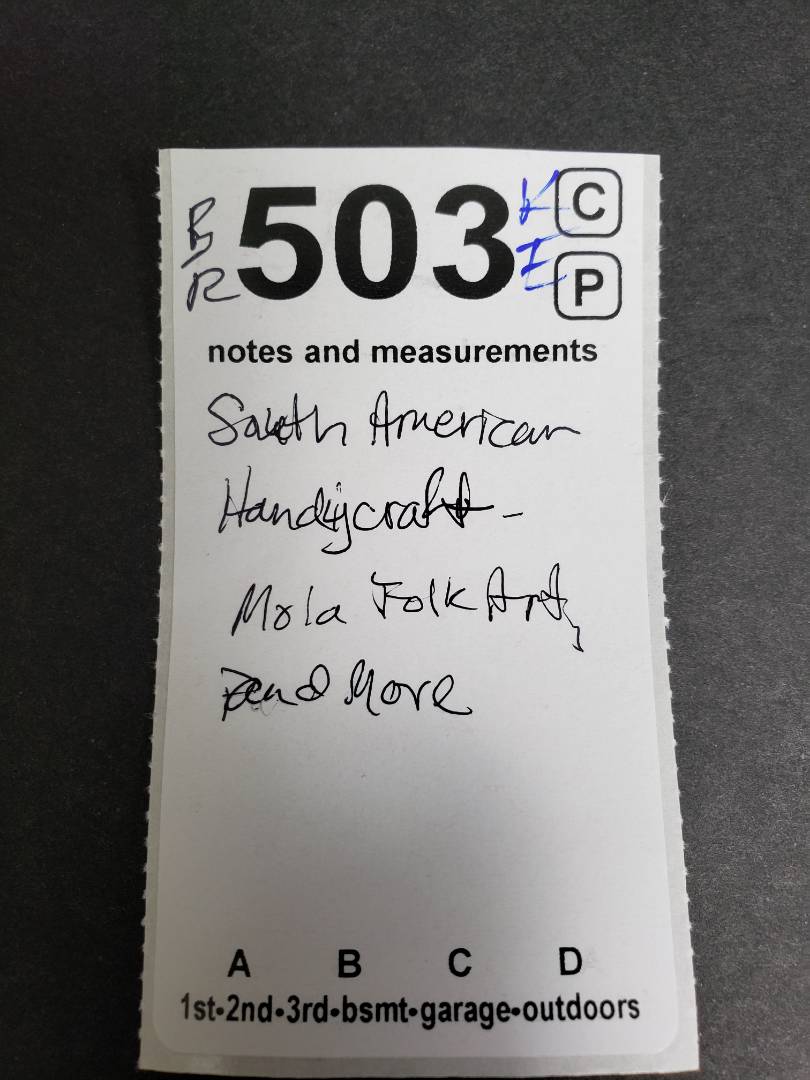 BR 503 KE C
P
notes and measurements
South American
Handycraft -
Mola Folk Art,
and More
A B C D
1st•2nd•3rd•bsmt•garage•outdoors